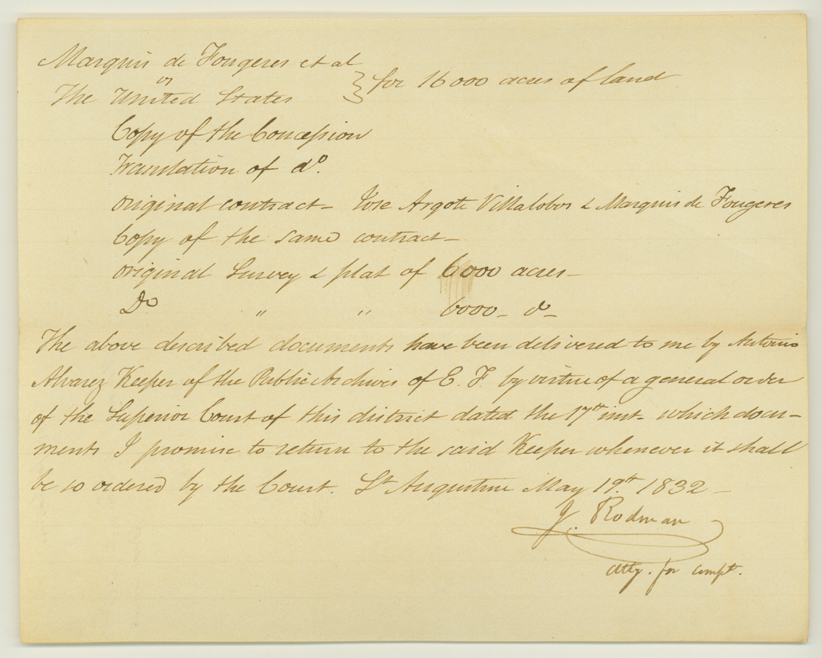 Marquis de Fougeres et al
vs } for 16000 acres of land
The United States
Copy of the Concession
Translation of do.
original contract - Jose Argote Villalobos & Marquis de Fougeres
Copy of the same contract -
original Survey & plat of 6000 acres -
Do " " 6000 - do -
The above described documents have been delivered to me by Antonio
Alvarez Keeper of the Public Archives of E. F. by virtue of a general order
of the Superior Court of this district dated the 17th inst - which docu-
ments I promise to return to the said Keeper whenever it shall
be so ordered by the Court. St Augustine May 19th. 1832 -
J. Rodman
atty. for compt.